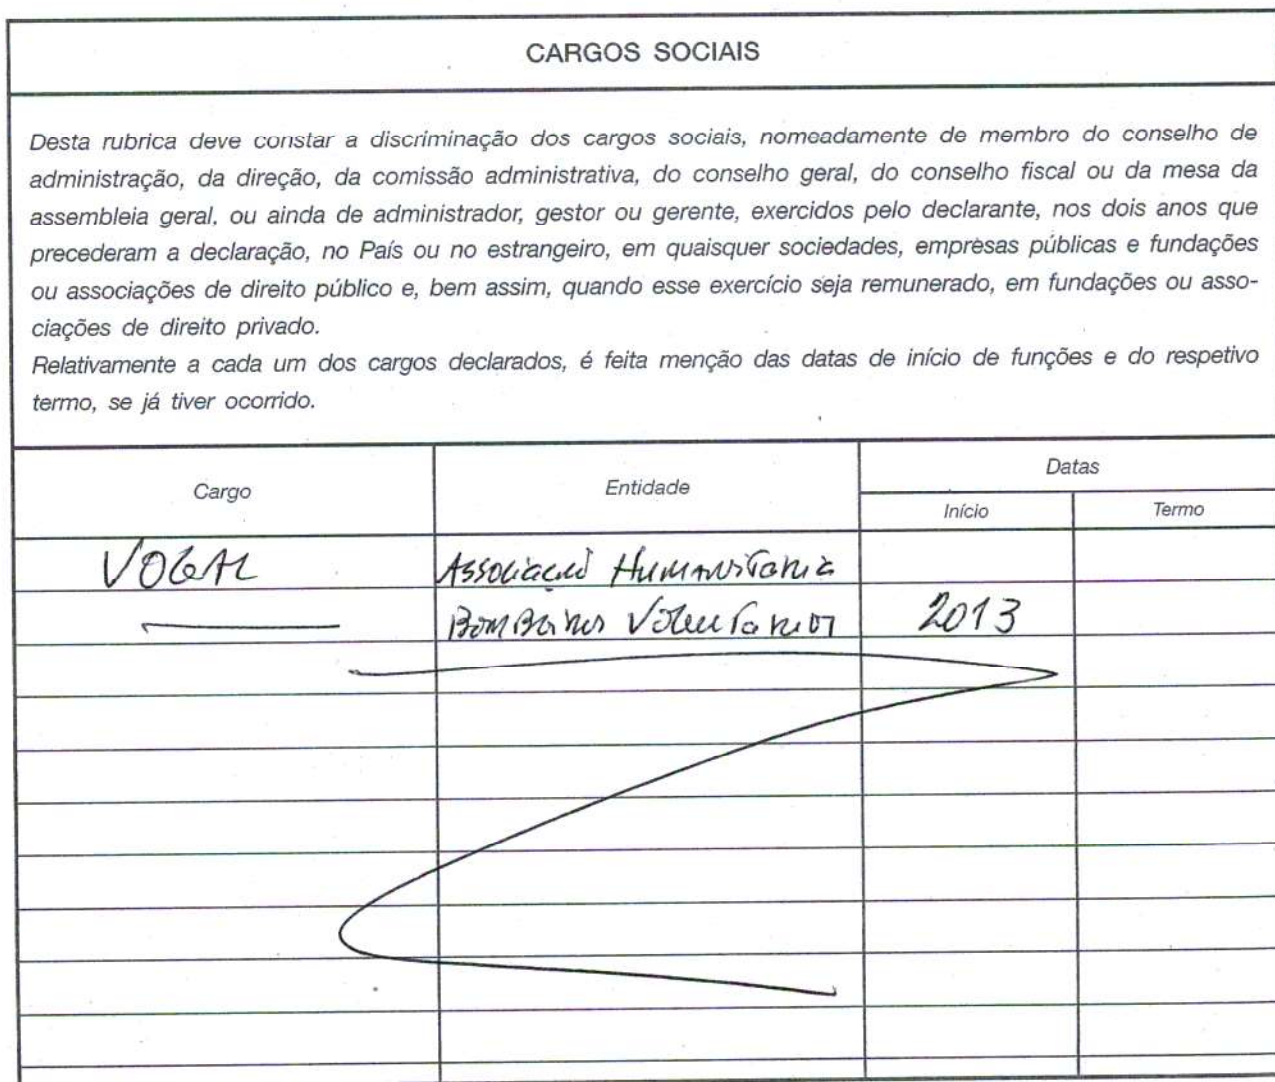 CARGOS SOCIAIS
Desta rubrica deve constar a discriminação dos cargos sociais, nomeadamente de membro do conselho de
administração, da direção, da comissão administrativa, do conselho geral, do conselho fiscal ou da mesa da
assembleia geral, ou ainda de administrador, gestor ou gerente, exercidos pelo declarante, nos dois anos que
precederam a declaração, no País ou no estrangeiro, em quaisquer sociedades, empresas públicas e fundações
ou associações de direito público e, bem assim, quando esse exercício seja remunerado, em fundações ou asso-
ciações de direito privado.
Relativamente a cada um dos cargos declarados, é feita menção das datas de início de funções e do respetivo
termo, se já tiver ocorrido.
Cargo Entidade Datas
Início Termo
VOGAL Associação Humanitária
Bombeiros Voluntários 2013